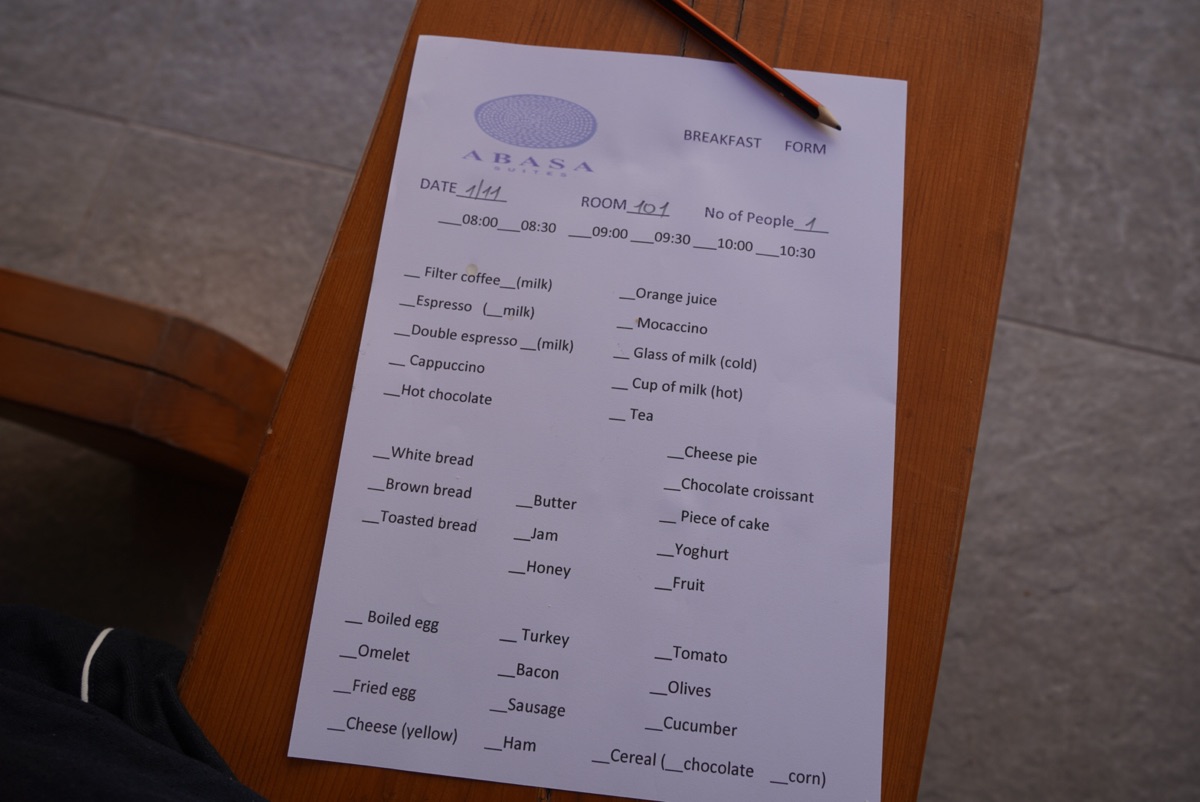 ABASA
SUITES
BREAKFAST FORM
DATE 1/11 ROOM 101 No of People 1
___08:00___08:30 ___09:00 ___09:30 ___10:00 ___10:30
__ Filter coffee__(milk)
__Espresso (__milk)
__Double espresso __(milk)
__ Cappuccino
__Hot chocolate
__Orange juice
__ Mocaccino
__ Glass of milk (cold)
__ Cup of milk (hot)
__ Tea
__White bread
__Brown bread
__Toasted bread
__Butter
__Jam
__Honey
__Cheese pie
__Chocolate croissant
__ Piece of cake
__Yoghurt
__Fruit
__ Boiled egg
__Omelet
__Fried egg
__Cheese (yellow)
__ Turkey
__Bacon
__Sausage
__Ham
__Tomato
__Olives
__Cucumber
__Cereal (__chocolate __corn)